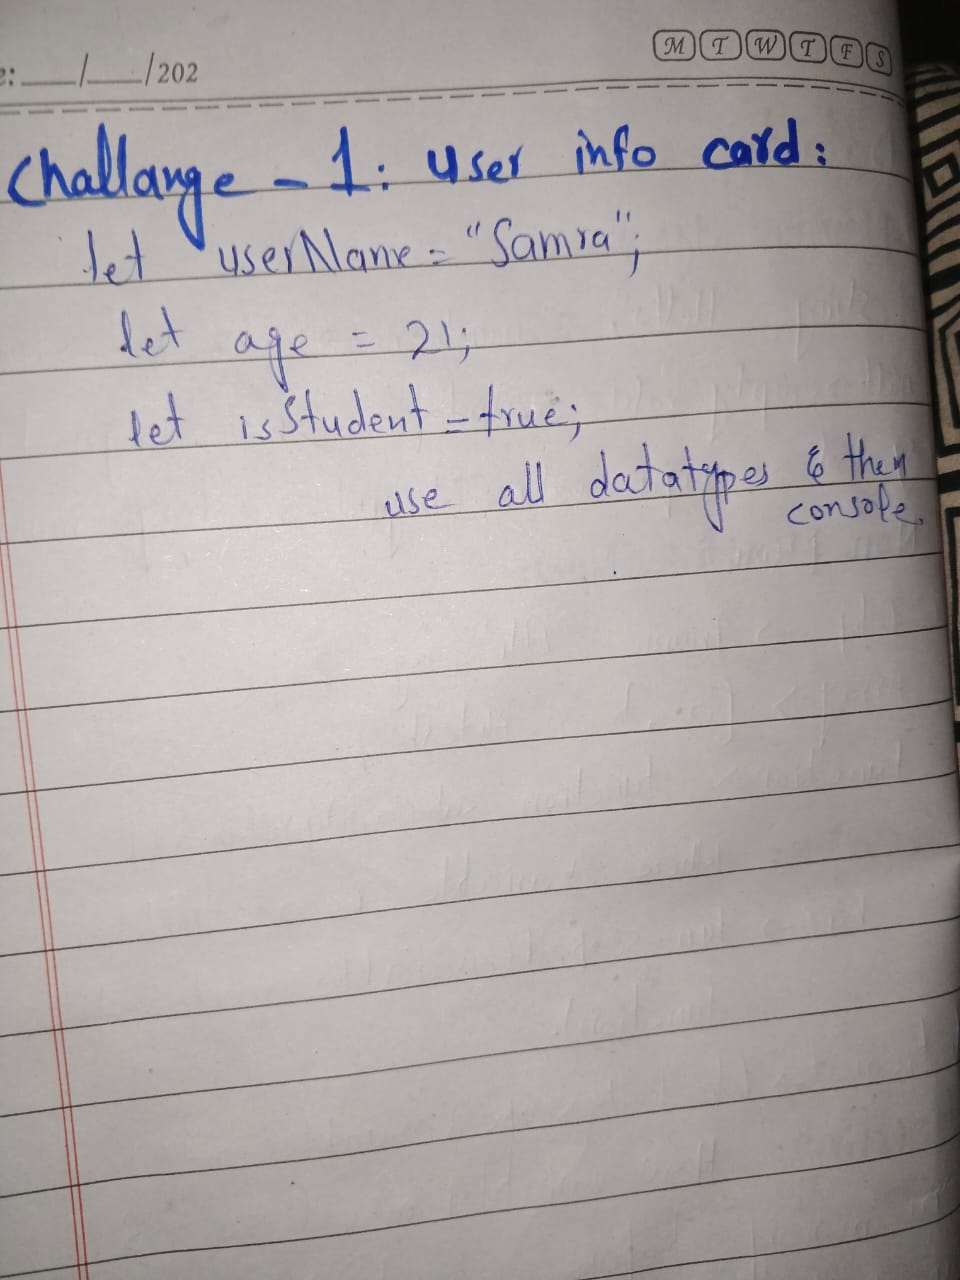 e: __/__/202
M T W T F S
Challange - 1: User info card:
let userName = "Samra";
let age = 21;
let isStudent = true;
use all datatypes & then
console.